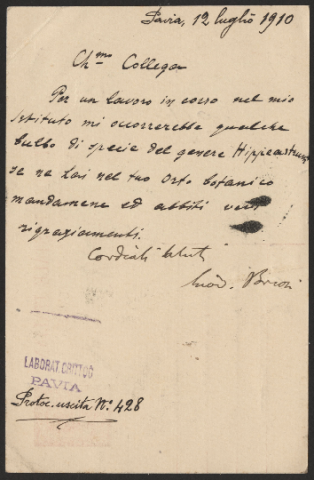 Pavia, 12 luglio 1910
Ch.mo Collega
Per un lavoro in corso nel mio
istituto mi occorrerebbe qualche
bulbo di specie del genere Hippeastrum
se ne hai nel tuo Orto botanico
mandamene ed abbiti vivi
ringraziamenti.
Cordiali saluti
Briosi
LABORAT. CRITTOG
PAVIA
Protoc. uscita N.° 428